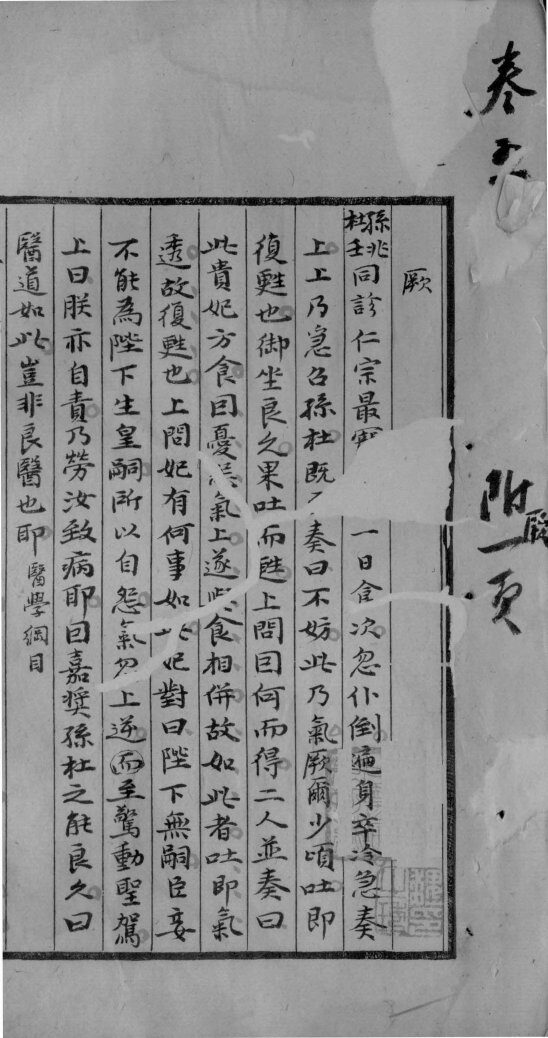 卷五
附一頁
厥
厥
孫兆
杜壬
同診仁宗最寵 一日食次忽仆倒遍身卒冷急奏
上上乃急召孫杜既 奏曰不妨此乃氣厥爾少頃吐即
復甦也御坐良久果吐而甦上問因何而得二人並奏曰
此貴妃方食因憂 氣上遂與食相併故如此者吐即氣
透故復甦也上問妃有何事如此妃對曰陛下無嗣臣妾
不能為陛下生皇嗣所以自怨氣忽上逆而至驚動聖駕
上曰朕亦自責乃勞汝致病耶因嘉奬孫杜之能良久曰
醫道如此豈非良醫也耶醫學綱目